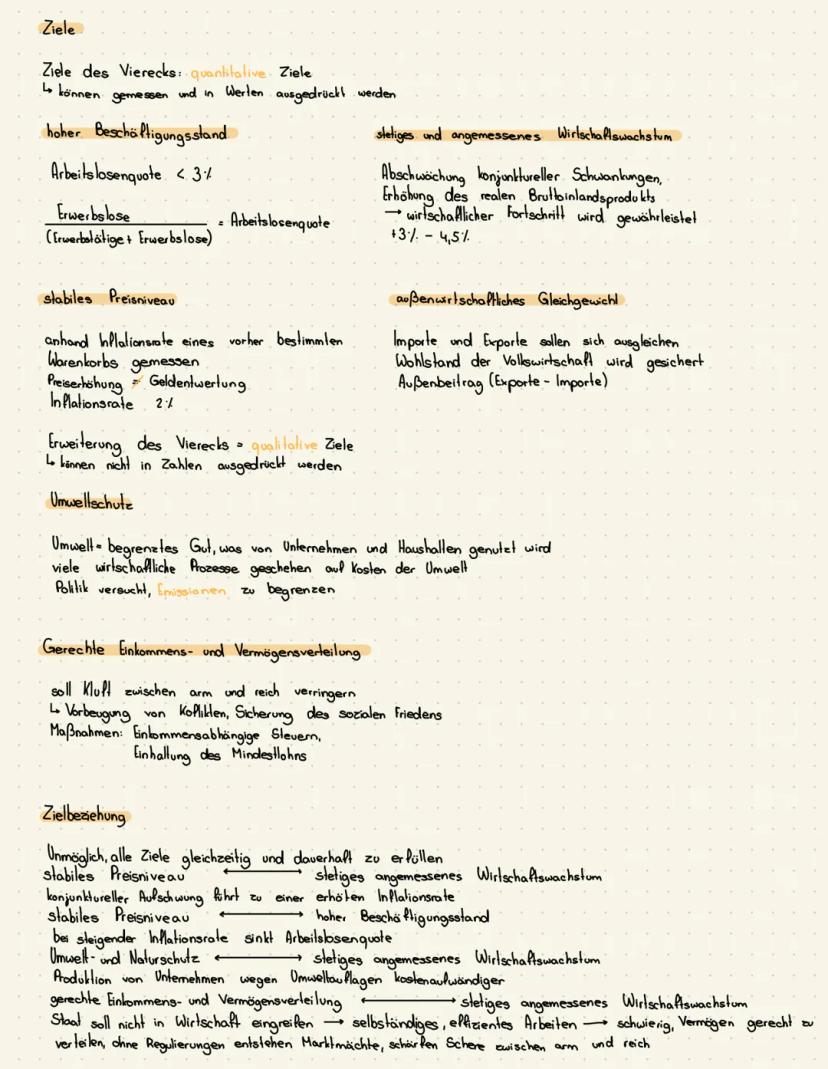 Ziele
Ziele des Vierecks: quantitative Ziele
↳ können gemessen und in Werten ausgedrückt werden
hoher Beschäftigungsstand
Arbeitslosenquote < 3%
Erwerbslose
(Erwerbstätige + Erwerbslose) = Arbeitslosenquote
stetiges und angemessenes Wirtschaftswachstum
Abschwächung konjunktureller Schwankungen,
Erhöhung des realen Bruttoinlandsprodukts
→ wirtschaftlicher Fortschritt wird gewährleistet
+3% - 4,5%
stabiles Preisniveau
anhand Inflationsrate eines vorher bestimmten
Warenkorbs gemessen
Preiserhöhung = Geldentwertung
Inflationsrate 2%
außenwirtschaftliches Gleichgewicht
Importe und Exporte sollen sich ausgleichen
Wohlstand der Volkswirtschaft wird gesichert
Außenbeitrag (Exporte - Importe)
Erweiterung des Vierecks = qualitative Ziele
↳ können nicht in Zahlen ausgedrückt werden
Umweltschutz
Umwelt = begrenztes Gut, was von Unternehmen und Haushalten genutzt wird
viele wirtschaftliche Prozesse geschehen auf Kosten der Umwelt
Politik versucht, Emissionen zu begrenzen
Gerechte Einkommens- und Vermögensverteilung
soll Kluft zwischen arm und reich verringern
↳ Vorbeugung von Kofliklen, Sicherung des sozialen Friedens
Maßnahmen: Einkommensabhängige Steuern,
Einhaltung des Mindestlohns
Zielbeziehung
Unmöglich, alle Ziele gleichzeitig und dauerhaft zu erfüllen
stabiles Preisniveau ⟷ stetiges angemessenes Wirtschaftswachstum
konjunktureller Aufschwung führt zu einer erhöten Inflationsrate
stabiles Preisniveau ⟷ hoher Beschäftigungsstand
bei steigender Inflationsrate sinkt Arbeitslosenquote
Umwelt- und Naturschutz ⟷ stetiges angemessenes Wirtschaftswachstum
Produktion von Unternehmen wegen Umweltauflagen kostenaufwändiger
gerechte Einkommens- und Vermögensverteilung ⟷ stetiges angemessenes Wirtschaftswachstum
Staat soll nicht in Wirtschaft eingreifen → selbständiges, effizientes Arbeiten → schwierig, Vermögen gerecht zu
verteilen, ohne Regulierungen entstehen Marktmächte, schärfen Schere zwischen arm und reich